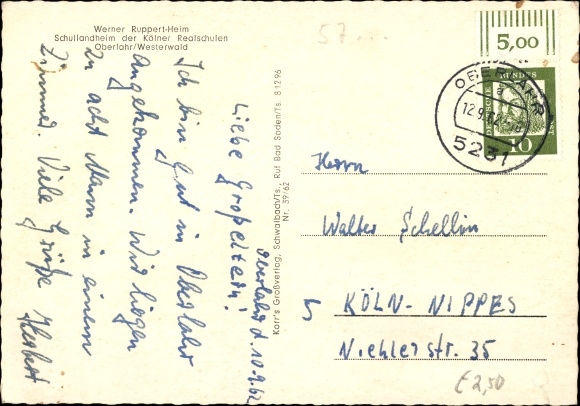 Werner Ruppert-Heim
Schullandheim der Kölner Realschulen
Oberlahr/Westerwald
57...
5,00
OBERLAHR
a
12.9.62
5231
DEUTSCHE BUNDESPOST
10
Oberlahr d. 10.9.62
Liebe Großeltern!
Ich bin gut in Oberlahr
angekommen. Wir liegen
zu acht Mann in einem
Zimmer. Viele Grüße Herbert
Korr's Großverlag, Schwalbach/Ts., Ruf Bad Soden/Ts. 81296
Nr. 39/62
Herrn
Walter Schellin
5 KÖLN-NIPPES
Niehlerstr. 35
€ 2,50